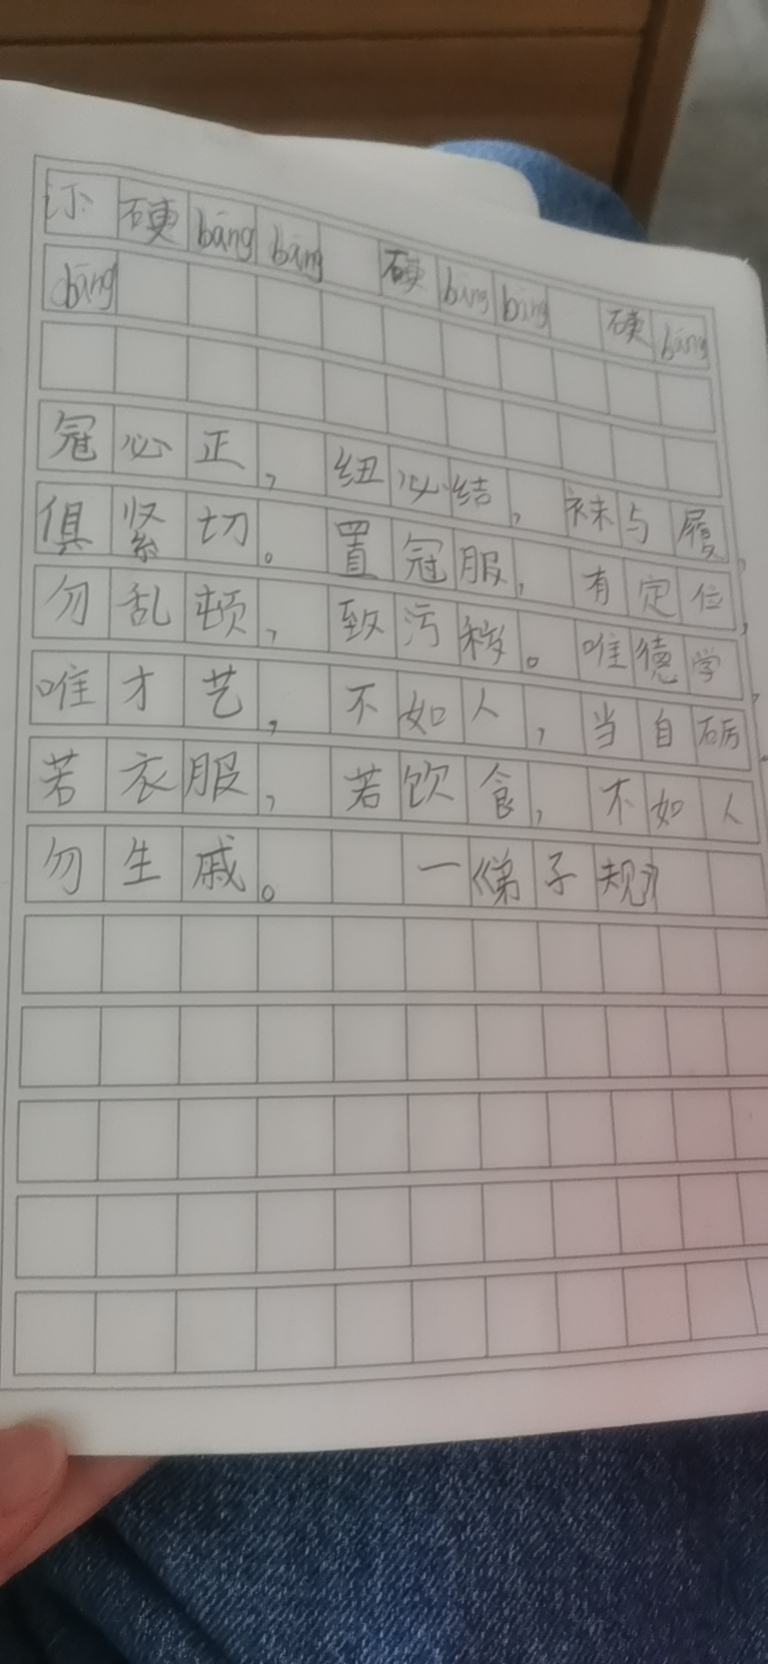 订: 硬 bāng bāng 硬 bāng bāng 硬 bāng
bāng
冠必正，纽必结，袜与履，
俱紧切。置冠服，有定位，
勿乱顿，致污秽。唯德学，
唯才艺，不如人，当自砺。
若衣服，若饮食，不如人
勿生戚。 一《弟子规》